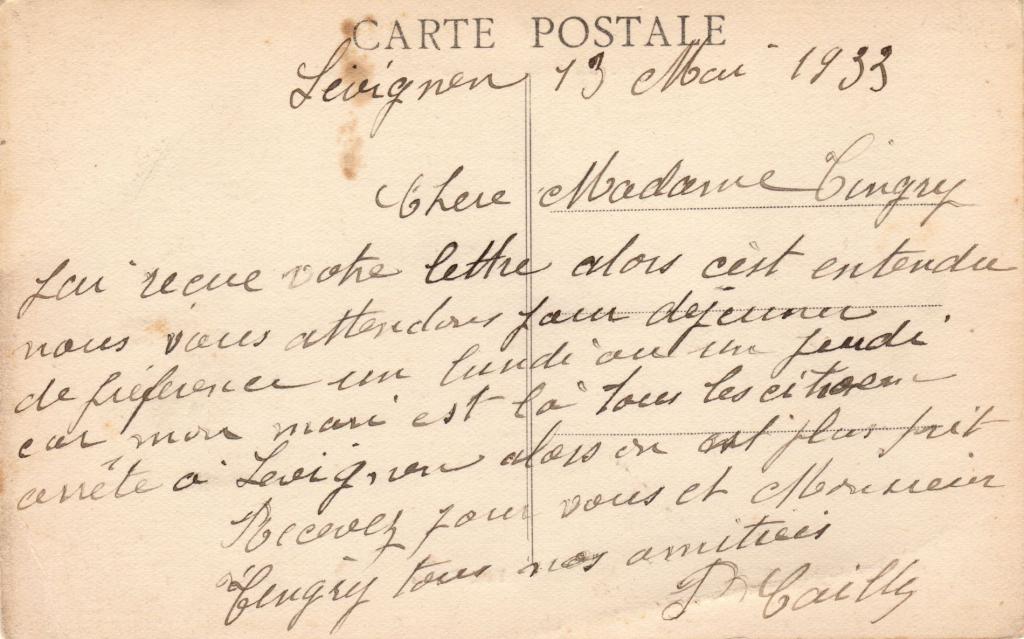 CARTE POSTALE
Levignen 13 Mai 1933
Chere Madame Tingry
Jai recue votre lettre alors cést entendu
nous vous attendons pour déjeuner
de préference un lundi ou un jeudi
car mon mari est là tous les
arrète a Levignen alors on est plus
Recevez pour vous et Monsieur
Tingry tous nos amitiéis
P Cailly